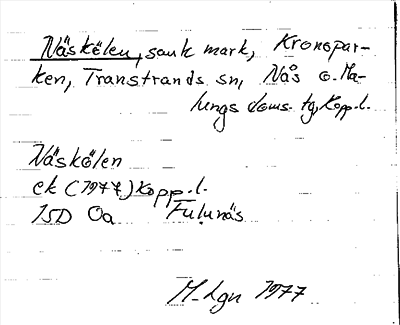 Näskölen, sank mark, Kronopar-
ken, Transtrands sn, Nås o. Ma-
lungs doms. tg, Kopp. l.
Näskölen
ek (1977) Kopp. l.
15D 0a Fulunäs
M-Lgn 1977